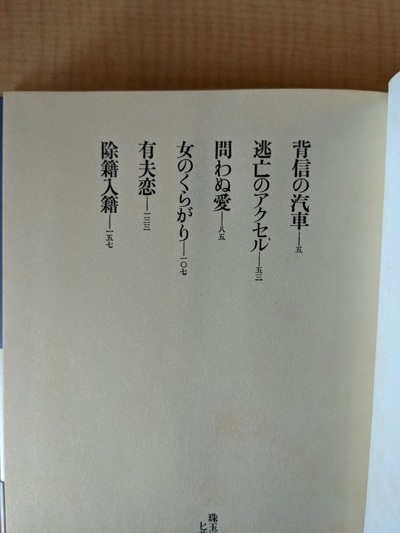 背信の汽車——五
逃亡のアクセル——五三
問わぬ愛——八五
女のくらがり——一〇七
有夫恋——一三三
除籍入籍——一五七
珠玉